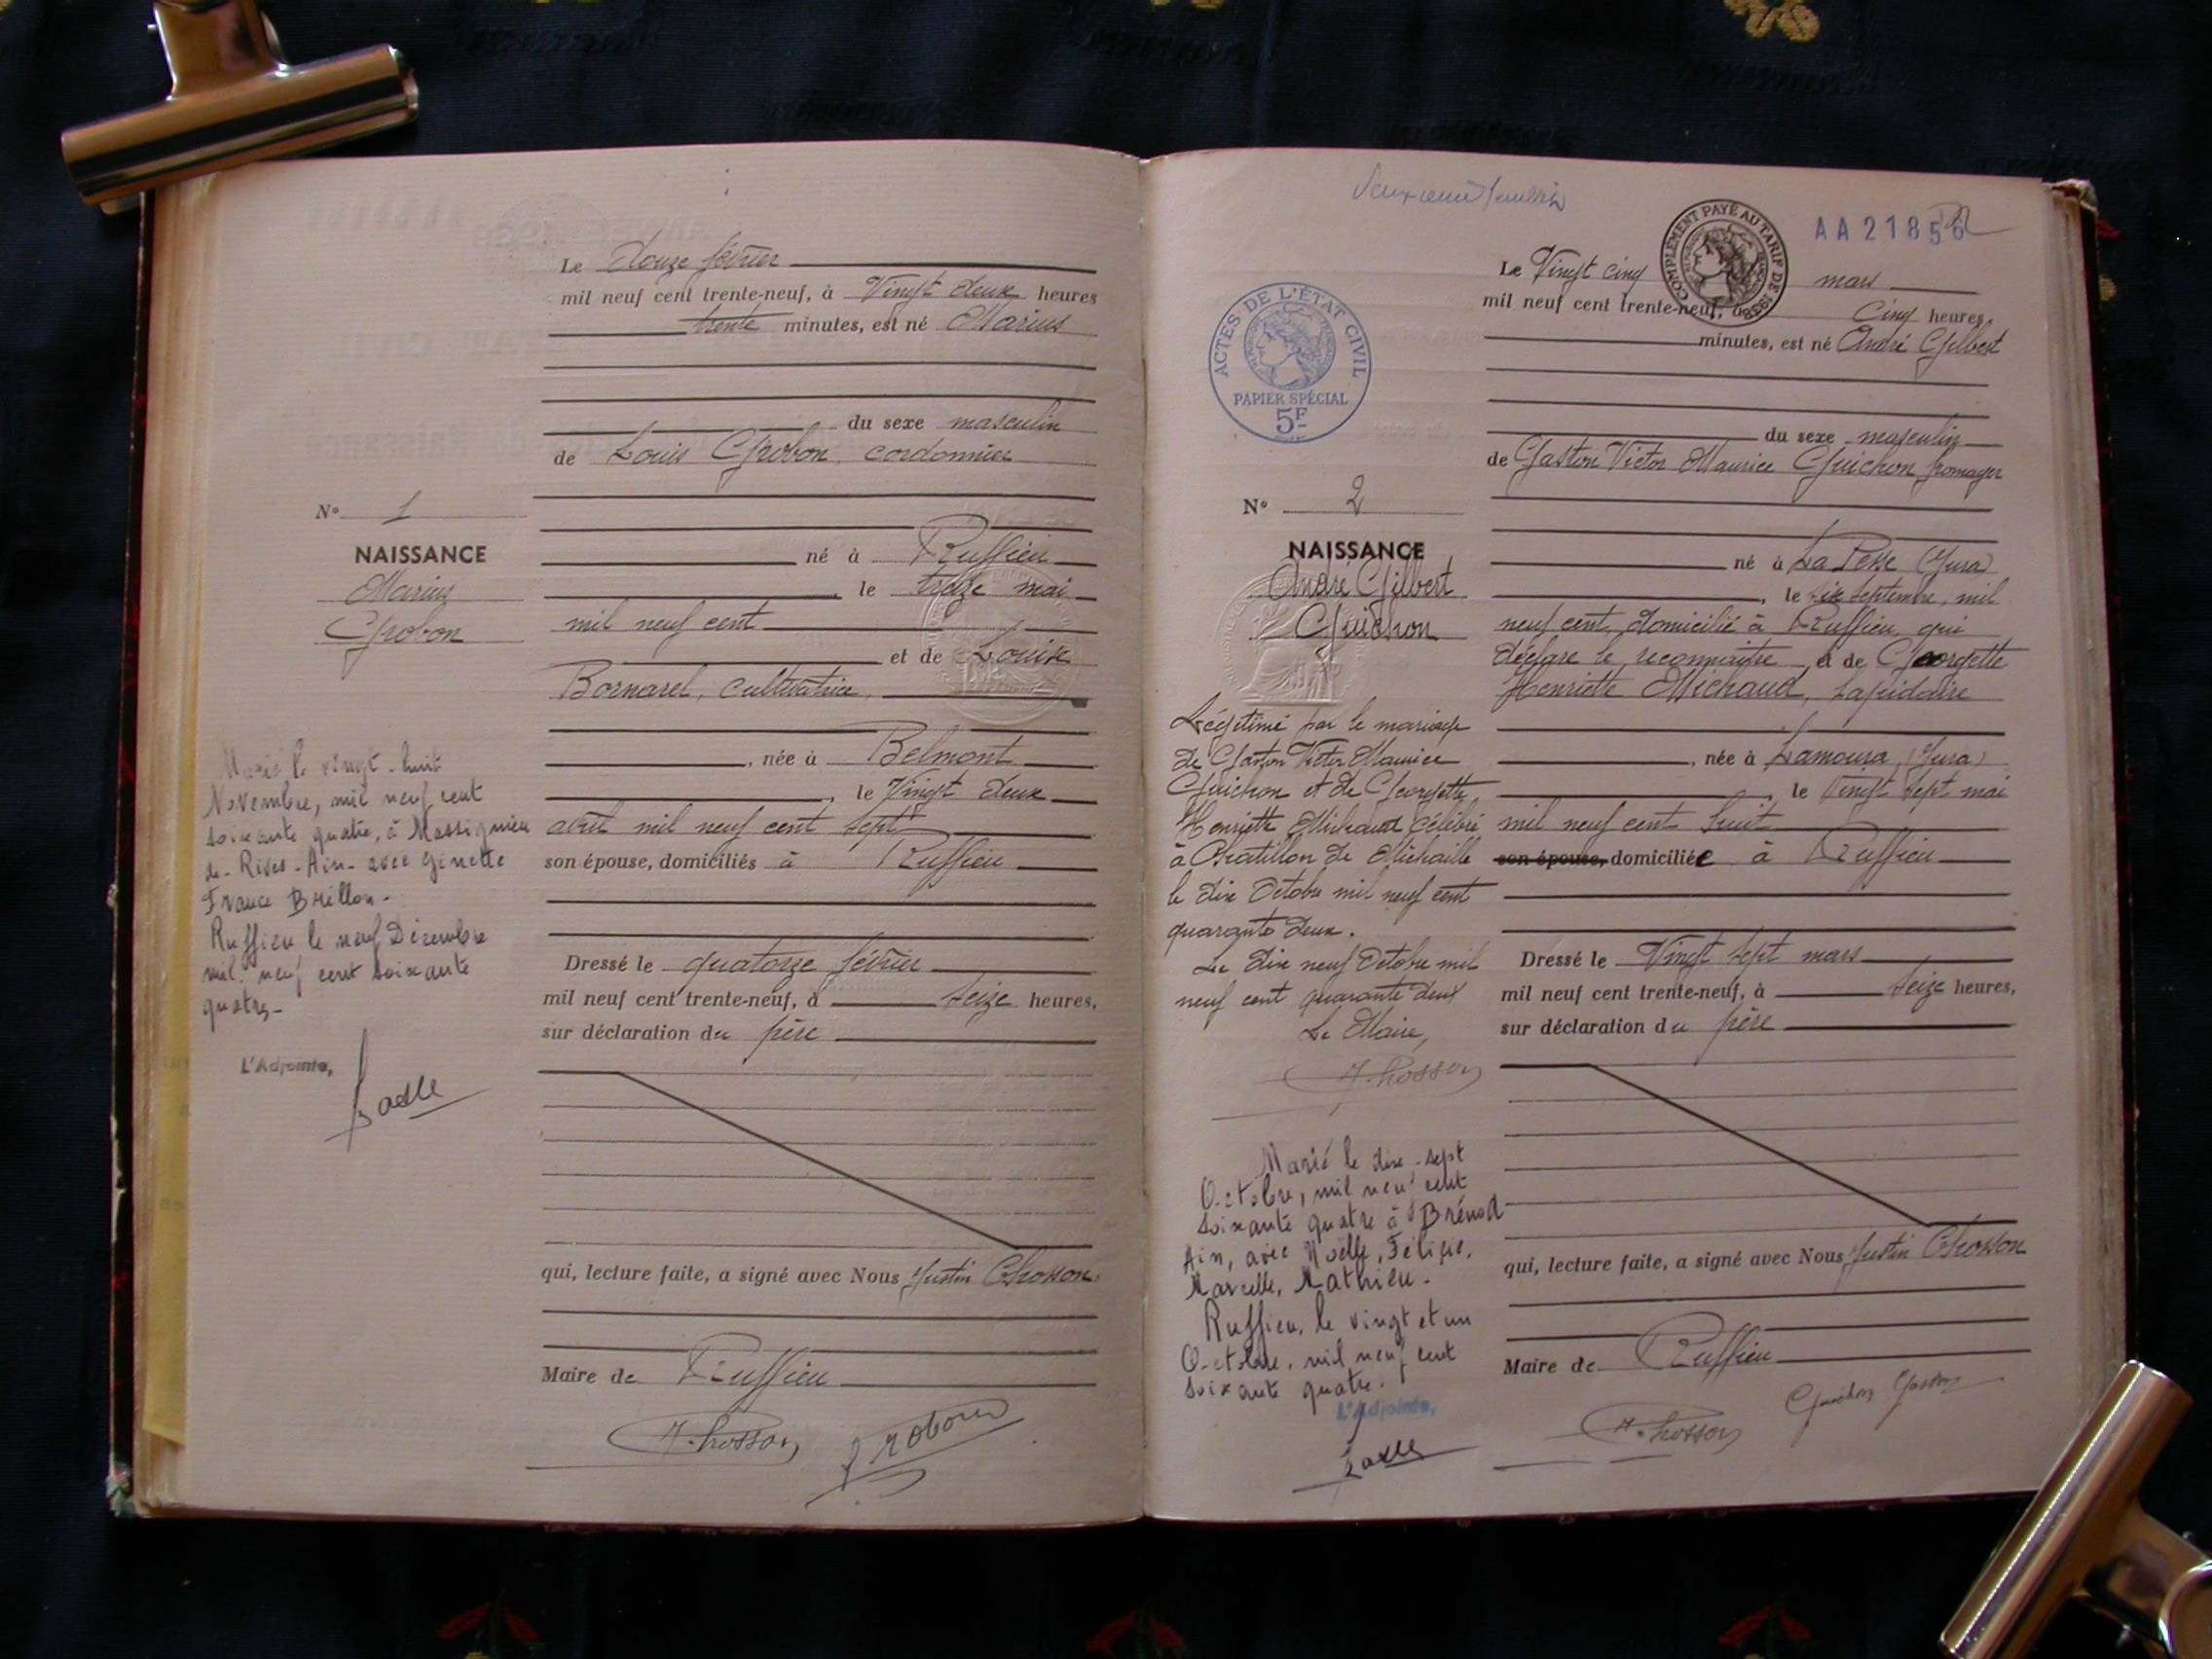 Le douze février
mil neuf cent trente-neuf, à Vingt deux heures
trente minutes, est né Marius
du sexe masculin
de Louis Grobon, cordonnier
né à Ruffieu
le treize mai
mil neuf cent
et de Louise
Bornarel, cultivatrice,
, née à Belmont
, le Vingt deux
avril mil neuf cent sept
son épouse, domiciliés à Ruffieu
Dressé le quatorze février
mil neuf cent trente-neuf, à seize heures,
sur déclaration du père
qui, lecture faite, a signé avec Nous Justin Chosson
Maire de Ruffieu
J. Chosson Grobon
N° 1
NAISSANCE
Marius
Grobon
Marié le vingt-huit
Novembre, mil neuf cent
soixante quatre, à Massignieu
de-Rives-Ain- avec Ginette
France Brillon-
Ruffieu le neuf Décembre
mil neuf cent soixante
quatre-
L'Adjointe,
Deuxième feuillet
COMPLÉMENT PAYÉ AU TARIF DE 1938
AA 21856
ACTES DE L'ÉTAT CIVIL
PAPIER SPÉCIAL
5F
Le Vingt cinq mars
mil neuf cent trente-neuf, à Cinq heures,
minutes, est né André Gilbert
du sexe masculin
de Gaston Victor Maurice Guichon fromager
né à La Pesse (Jura)
, le six septembre, mil
neuf cent, domicilié à Ruffieu, qui
déclare le reconnaître, et de Georgette
Henriette Michaud, Lapidaire
, née à Lamoura, (Jura)
, le Vingt sept mai
mil neuf cent huit
son épouse, domiciliée à Ruffieu
Dressé le Vingt sept mars
mil neuf cent trente-neuf, à seize heures,
sur déclaration du père
qui, lecture faite, a signé avec Nous Justin Chosson
Maire de Ruffieu
J. Chosson Guichon Gaston
N° 2
NAISSANCE
André Gilbert
Guichon
Légitimé par le mariage
de Gaston Victor Maurice
Guichon et de Georgette
Henriette Michaud célébré
à Chatillon de Michaille
le dix Octobre mil neuf cent
quarante deux.
Le dix neuf Octobre mil
neuf cent quarante deux
Le Maire,
J. Chosson
Marié le dix-sept
Octobre, mil neuf cent
soixante quatre à Brénod
Ain, avec Noëlle, Félicie,
Marcelle, Mathieu-
Ruffieu, le vingt et un
Octobre, mil neuf cent
soixante quatre.
L'Adjointe,